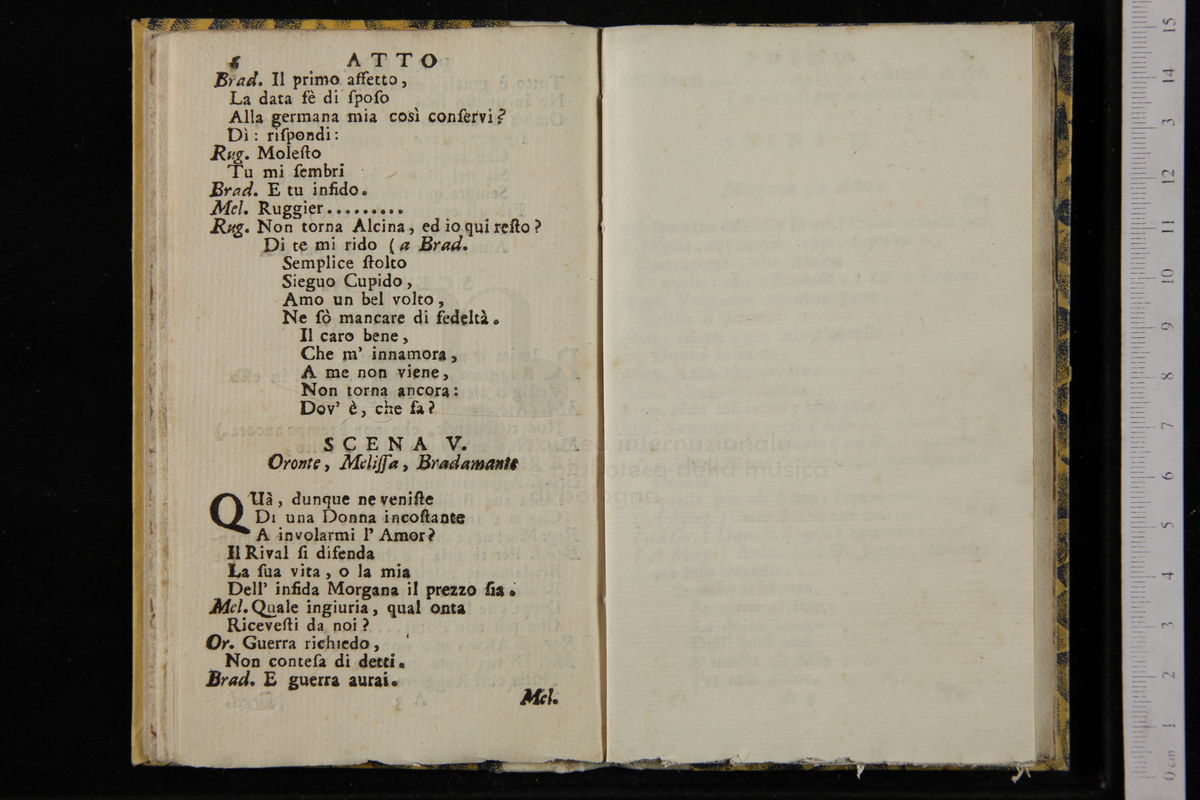 6 ATTO
Brad. Il primo affetto,
La data fè di ſpoſo
Alla germana mia così conſervi?
Dì: riſpondi:
Rug. Moleſto
Tu mi ſembri
Brad. E tu infido.
Mel. Ruggier.........
Rug. Non torna Alcina, ed io qui reſto?
Di te mi rido (a Brad.
Semplice ſtolto
Sieguo Cupido,
Amo un bel volto,
Ne ſò mancare di fedeltà.
Il caro bene,
Che m' innamora,
A me non viene,
Non torna ancora:
Dov' è, che fa?
SCENA V.
Oronte, Meliſſa, Bradamante
QUà, dunque ne veniſte
Di una Donna incoſtante
A involarmi l' Amor?
Il Rival ſi difenda
La ſua vita, o la mia
Dell' infida Morgana il prezzo ſia.
Mel. Quale ingiuria, qual onta
Riceveſti da noi?
Or. Guerra richiedo,
Non conteſa di detti.
Brad. E guerra aurai.
Mel.
museo internazionale
e biblioteca della musica
di bologna
0 cm 1 2 3 4 5 6 7 8 9 10 11 12 13 14 15